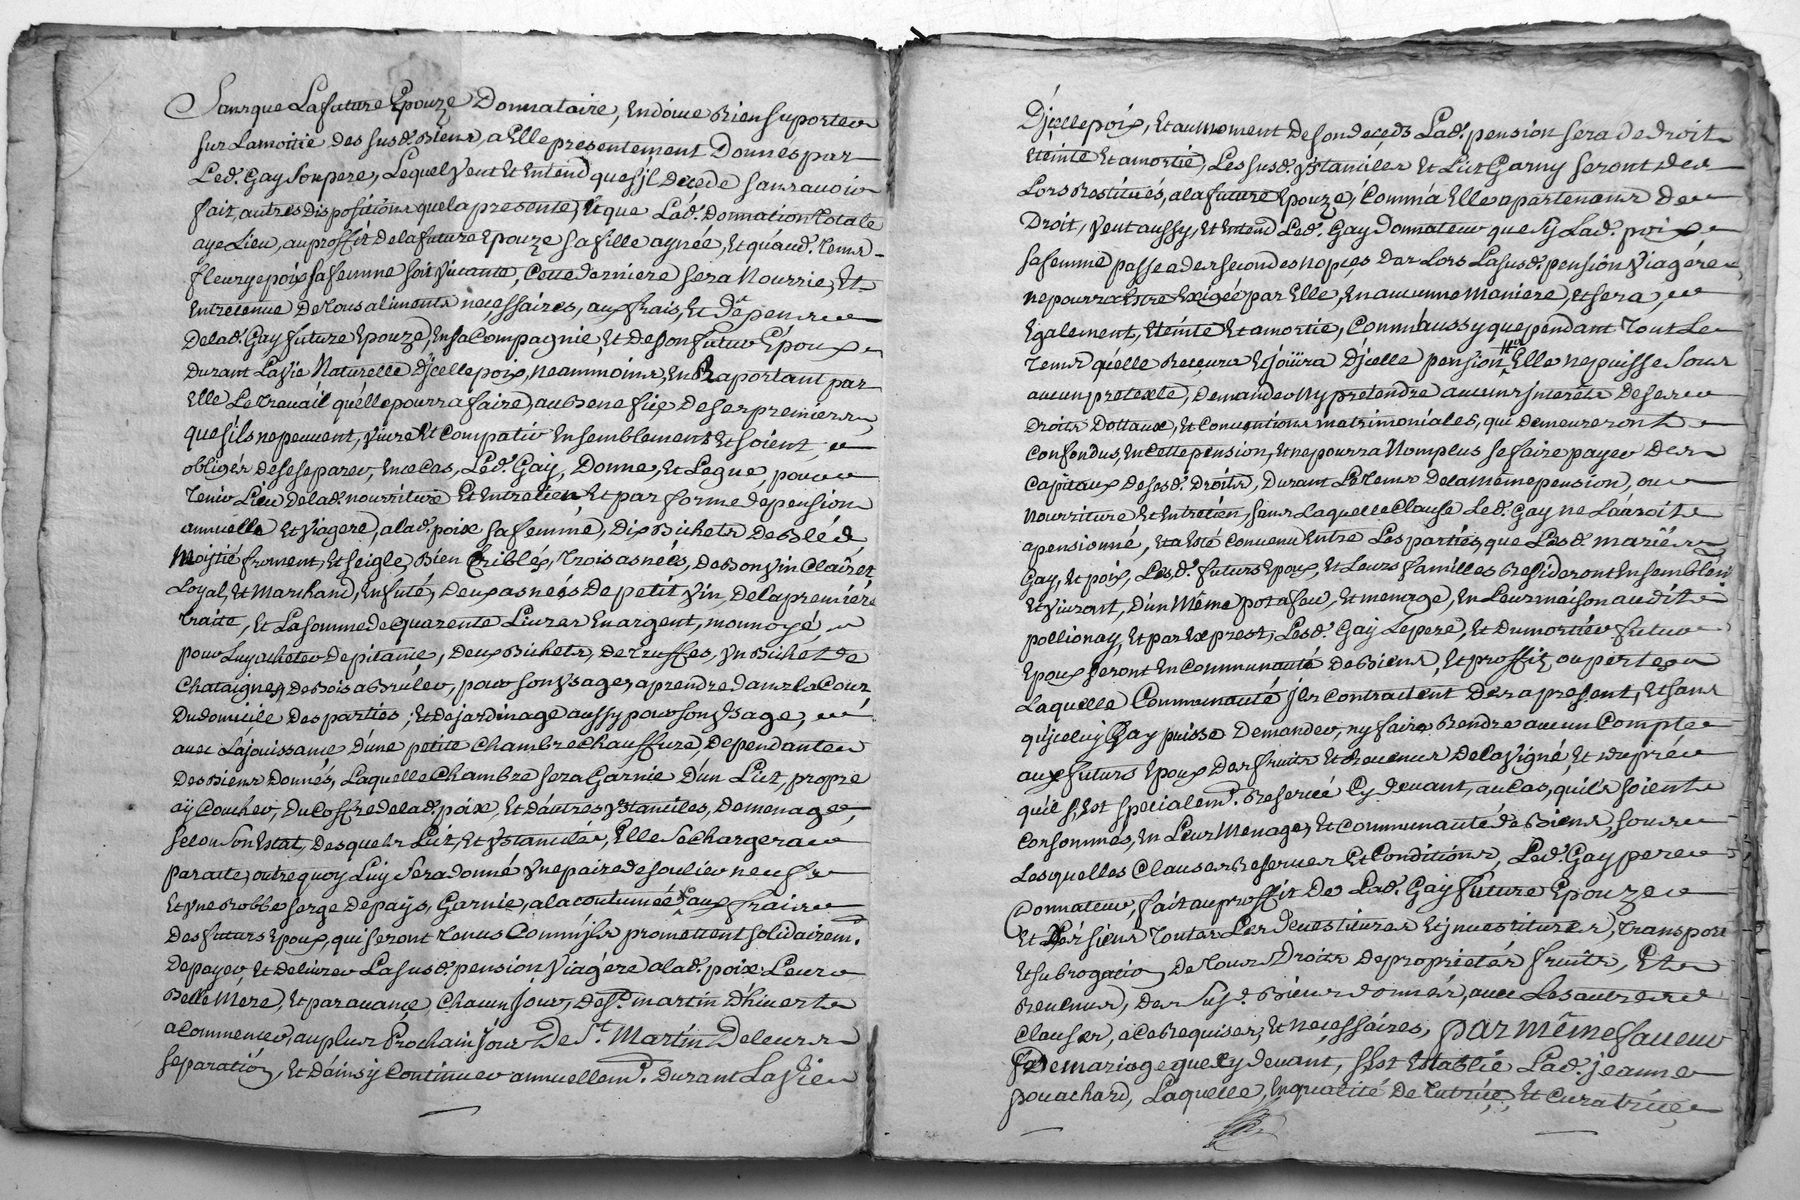 Sans que La future Epouze Donnataire, En doive Rien suporter
sur La moitié des susd. Biens, a Elle presentement Donnés par
Led. Gay son pere, Lequel Veut Et Entend que s'jl décede sans avoir
fait, autres dispositions que la presente, Et que Lad. Donnation Totale
aye Lieu, au proffit de la future Epouze sa fille aynée, Et qu'aud. Tems
fleurye poix sa femme soit Vivante, Cette derniere sera Nourrie, Et
Entretenue De Tous aliments neçessaires, aux frais, Et dépens
De lad. Gay future Epouze, En sa Compagnie, Et de son futur Époux
Durant La Vie Naturelle d'jcelle poix, neammoins, En Raportant par
Elle Le Travail qu'elle pourra faire, au Benefice de ses premiers
que s'ils ne peuvent, Vivre Et Compatir Ensemblement Et soient
obligés de se separer, En ce Cas, Led. Gay, Donne, Et Legue, pour
Tenir Lieu de lad. nourriture Et Entretien Et par forme de pension
annuelle Et Viagere, a lad. poix sa femme, Dix Bichets de Bled
Moytié froment, Et seigle, Bien Criblés, Trois asnées, de Bon Vin Clairet
Loyal, Et Marchand, En futé, Deux asnées de petit Vin, de la premiére
traite, Et La somme de quarente Livres En argent, monnoyé,
pour Luy acheter de pitance, Deux Bichets, de Truffes, Vn Bichet de
Chataignes, de Bois a Bruler, pour son Vsage, a prendre dans La Cour
Du domicile des parties; Et de jardinage aussy pour son Vsage,
avec La jouissance d'une petite Chambre chauffure, dependante
Des Biens Donnés, Laquelle Chambre sera Garnie d'un Lict, propre
ay Coucher, Du Coffre de lad. poix, Et d'autres Vstanciles, de menage,
selon Son Estat, Desquels Lit, Et Vstancile, Elle se chargera
par acte, outre quoy Luy Sera donné Vne paire de soulier neufs
Et Vne Robbe serge de païs, Garnie, a la coutumée, aux fraix
Des futurs Epoux, qui seront Tenus Comm'jls promettent solidairem.t
De payer Et delivrer La susd. pension Viagére a lad. poix Leur
Belle Mére, Et par avance Chacun Jour, de S.t martin d'hiver
a Commencer, au plus Prochain Jour De S.t Martin De leur
separation, Et d'ainsy Continuer annuellem.t Durant La Vie
D'jcelle poix, Et au moment de son deceds Lad. pension sera de droit
Eteinte Et amortie, Les susd. Vstanciles Et Lict Garny seront des
Lors Restitués, a la future Epouze, Comm'a Elle apartenans de
Droit, Veut aussy, Et Entend Led. Gay Donnateur que sy Lad. poix
sa femme passe a des secondes nopçes Des Lors La susd. pension Viagére
ne pourra Estre Exigée par Elle, En aucunne Maniere, Et sera,
Egalement, Eteinte Et amortie, Comm'aussy que pendant Tout Le
Tems qu'elle Recevra Et joüira d'jcelle pension, Elle ne puisse sous
aucun pretexte, Demander Ny pretendre aucuns jnterêts de ses
Droits Dottaux, Et Conventions matrimoniales, qui demeureront
Confondus, En Cette pension, Et ne pourra Nomplus se faire payer Des
Capitaux de ses d. Droits, Durant Le Tems de la même pension, ou
Nourriture Et Entretien, sans Laquelle Clause Led. Gay ne L'auroit
apensionné, Et a Esté Convenu Entre Les parties que Lesd. mariés
Gay, Et poix, Lesd. futurs Epoux, Et Leurs familles Resideront Ensemblem.t
Et Vivront, d'un Même pot a feu, Et menage, En Leur maison audit
pollionay, Et par Exprest, Lesd. Gay Le pere, Et Dumortier futur
Epoux seront En Communauté de Biens, Et proffit, ou perte
Laquelle Communauté jls contractent des a present, Et sans
qu'jceluy Gay puisse Demander, ny faire Rendre aucun Compte
aux futurs Epoux Des fruits Et Revenus De la Vigne, Et du pré
qu'il s'est specialem.t Reservé Cy devant, au Cas, qu'ils soient
Consommés, En Leur Menage, Et Communauté de Biens, sous
Lesquelles Clauses Reserves Et Conditions, Led. Gay pere
Donnateur, fait au proffit De Lad. Gay future Epouze
Et Les siens Toutes Les devestitures Et jnvestitures, Transport
Et subrogation De Tous Droits de proprietés fruits, Et
Revenus, Des Susd. Biens donnés, avec Les autres
Clauses, a ce Requises, Et necessaires, par même faveur
De mariage que cy devant, s'est Establie Lad. jeanne
pouachard, Laquelle, En qualité De Tutrice, Et Curatrice